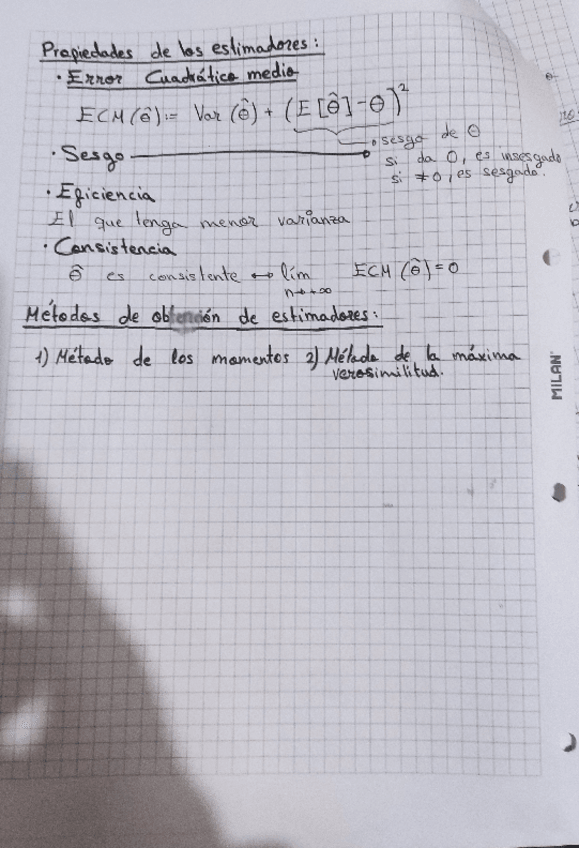 Propiedades de los estimadores:
· Error Cuadrático medio
ECM(θ̂):= Var(θ̂) + (E[θ̂]-θ)²
sesgo de θ
· Sesgo
si da 0, es insesgado
si ≠0, es sesgado.
· Eficiencia
El que tenga menor varianza
· Consistencia
θ̂ es consistente ↔ lím ECM(θ̂)=0
n→+∞
Métodos de obtención de estimadores:
1) Método de los momentos 2) Método de la máxima
verosimilitud.
MILAN